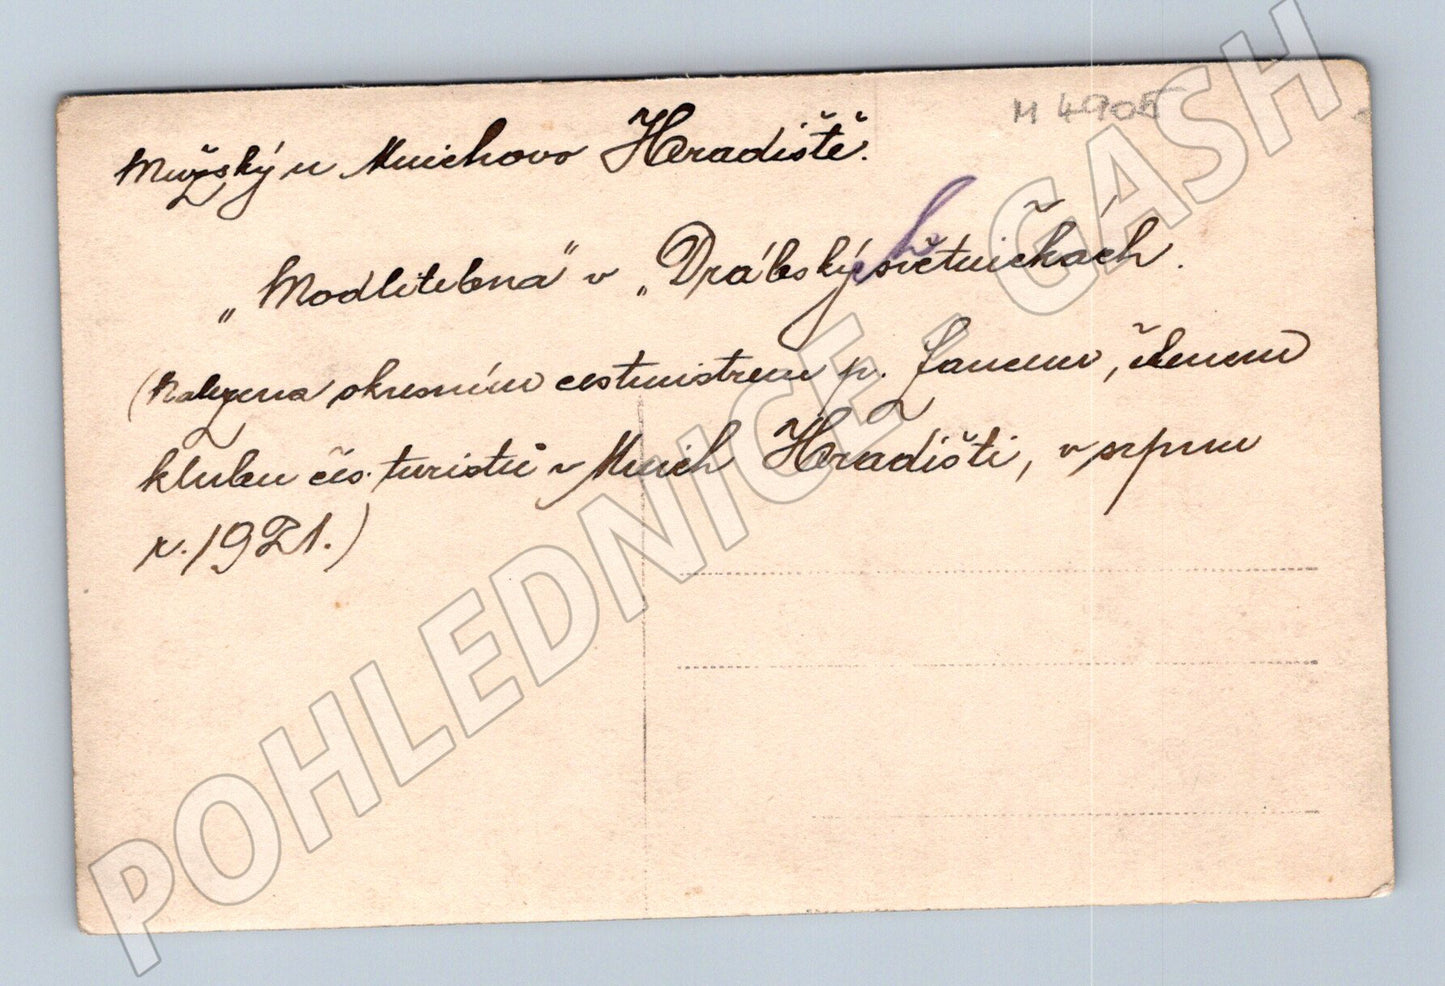 M 4905
Mužský u Mnichovo Hradiště.
„Modlitebna" v „Drábských světničkách.
(Nalezena okresním cestmistrem p. Jancem, členem
klubu čes. turistů v Mnich Hradišti, v srpnu
r. 1921.)
POHLEDNICE - GASH